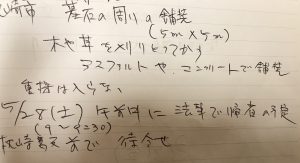 崎市 墓石の周りの舗装
(5m×5m)
木や草を刈りとってから
アスファルトや、コンクリートで舗装
重機は入らない
5/28(土) 午前中に 法事で帰省の予定
(9〜9=30)
枕崎 前で 待合せ